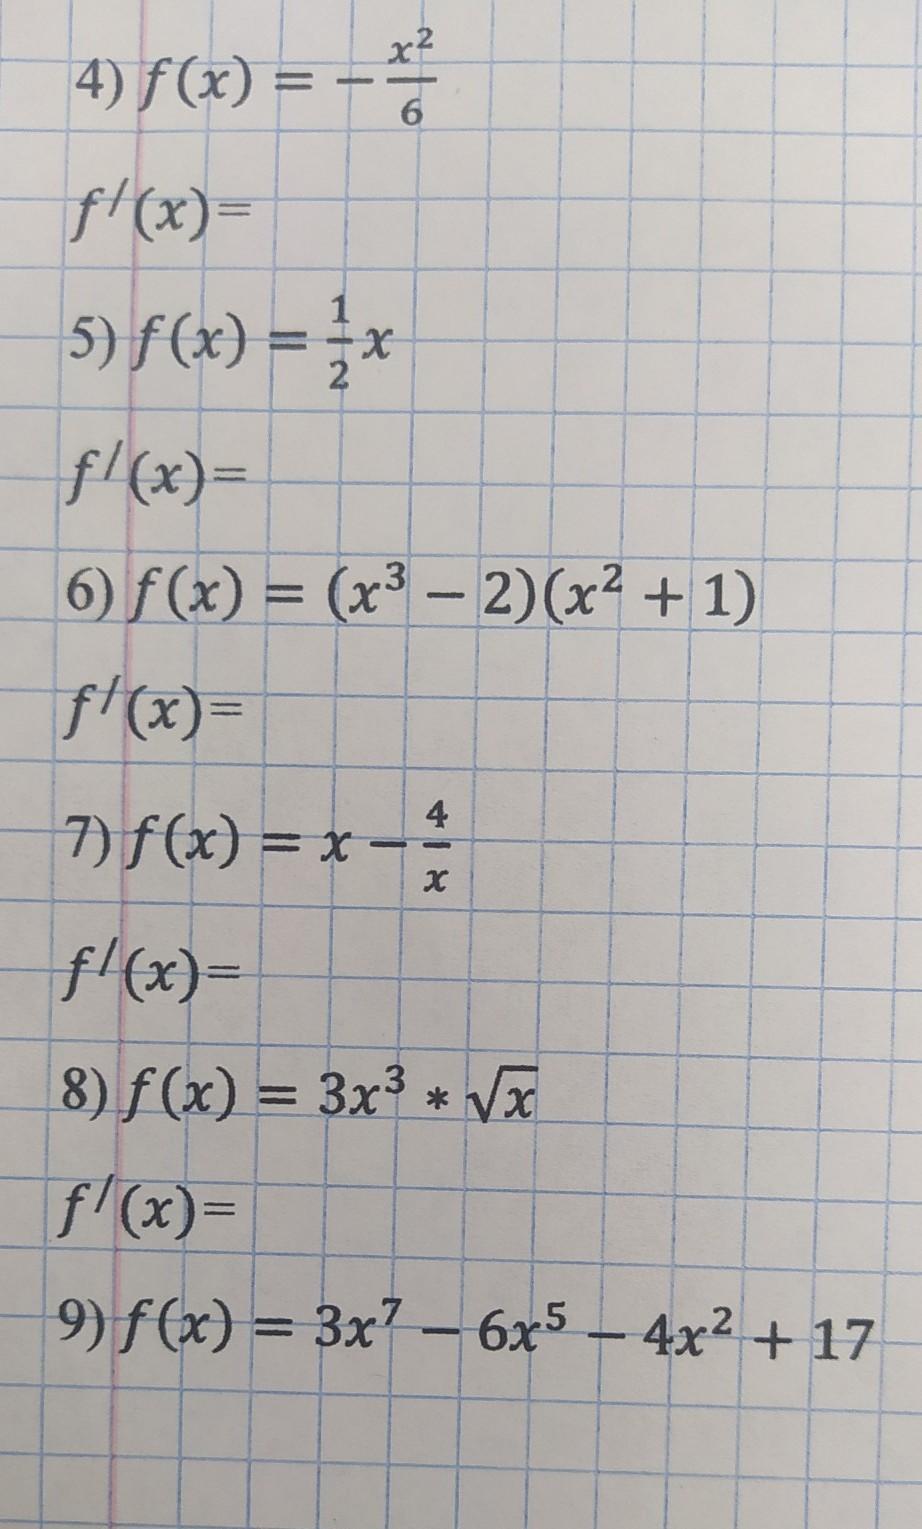 4) f(x) = −x²/6
f′(x)=
5) f(x) = 1/2 x
f′(x)=
6) f(x) = (x³ − 2)(x² + 1)
f′(x)=
7) f(x) = x − 4/x
f′(x)=
8) f(x) = 3x³ * √x
f′(x)=
9) f(x) = 3x⁷ − 6x⁵ − 4x² + 17